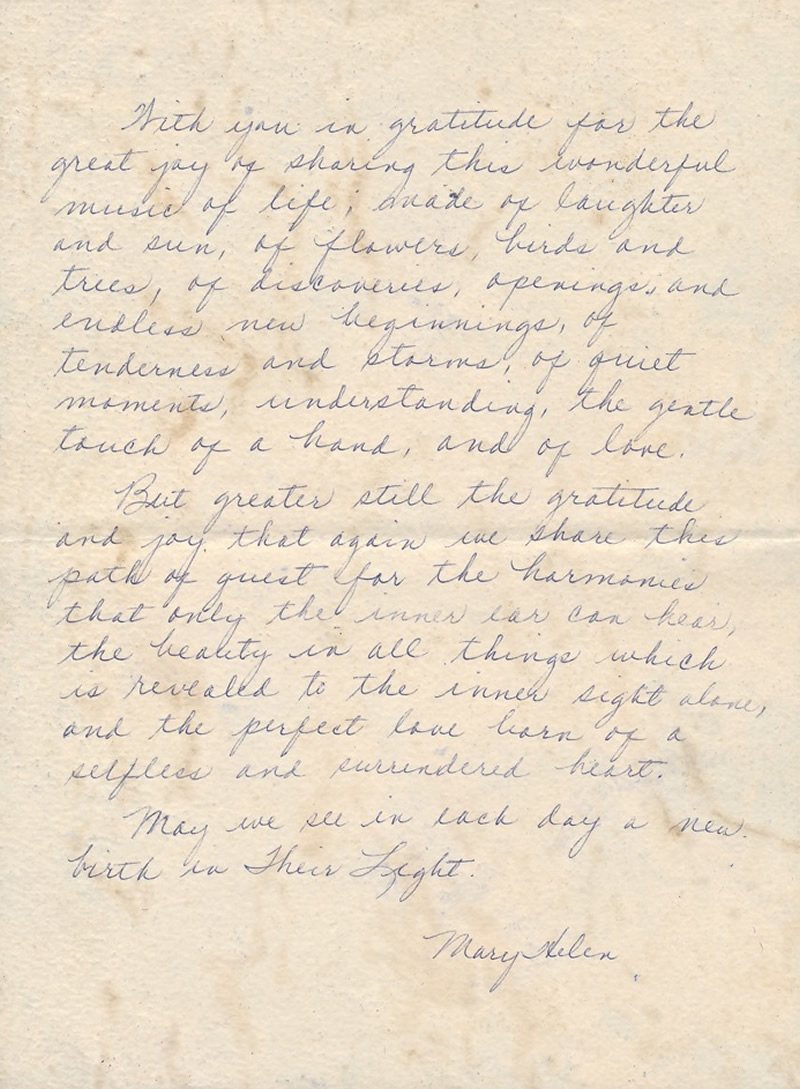 With you in gratitude for the
great joy of sharing this wonderful
music of life; made of laughter
and sun, of flowers, birds and
trees, of discoveries, openings, and
endless new beginnings, of
tenderness and storms, of quiet
moments, understanding, the gentle
touch of a hand, and of love.
But greater still the gratitude
and joy that again we share this
path of quest for the harmonies
that only the inner ear can hear,
the beauty in all things which
is revealed to the inner sight alone,
and the perfect love born of a
selfless and surrendered heart.
May we see in each day a new
birth in Their Light.
Mary Helen